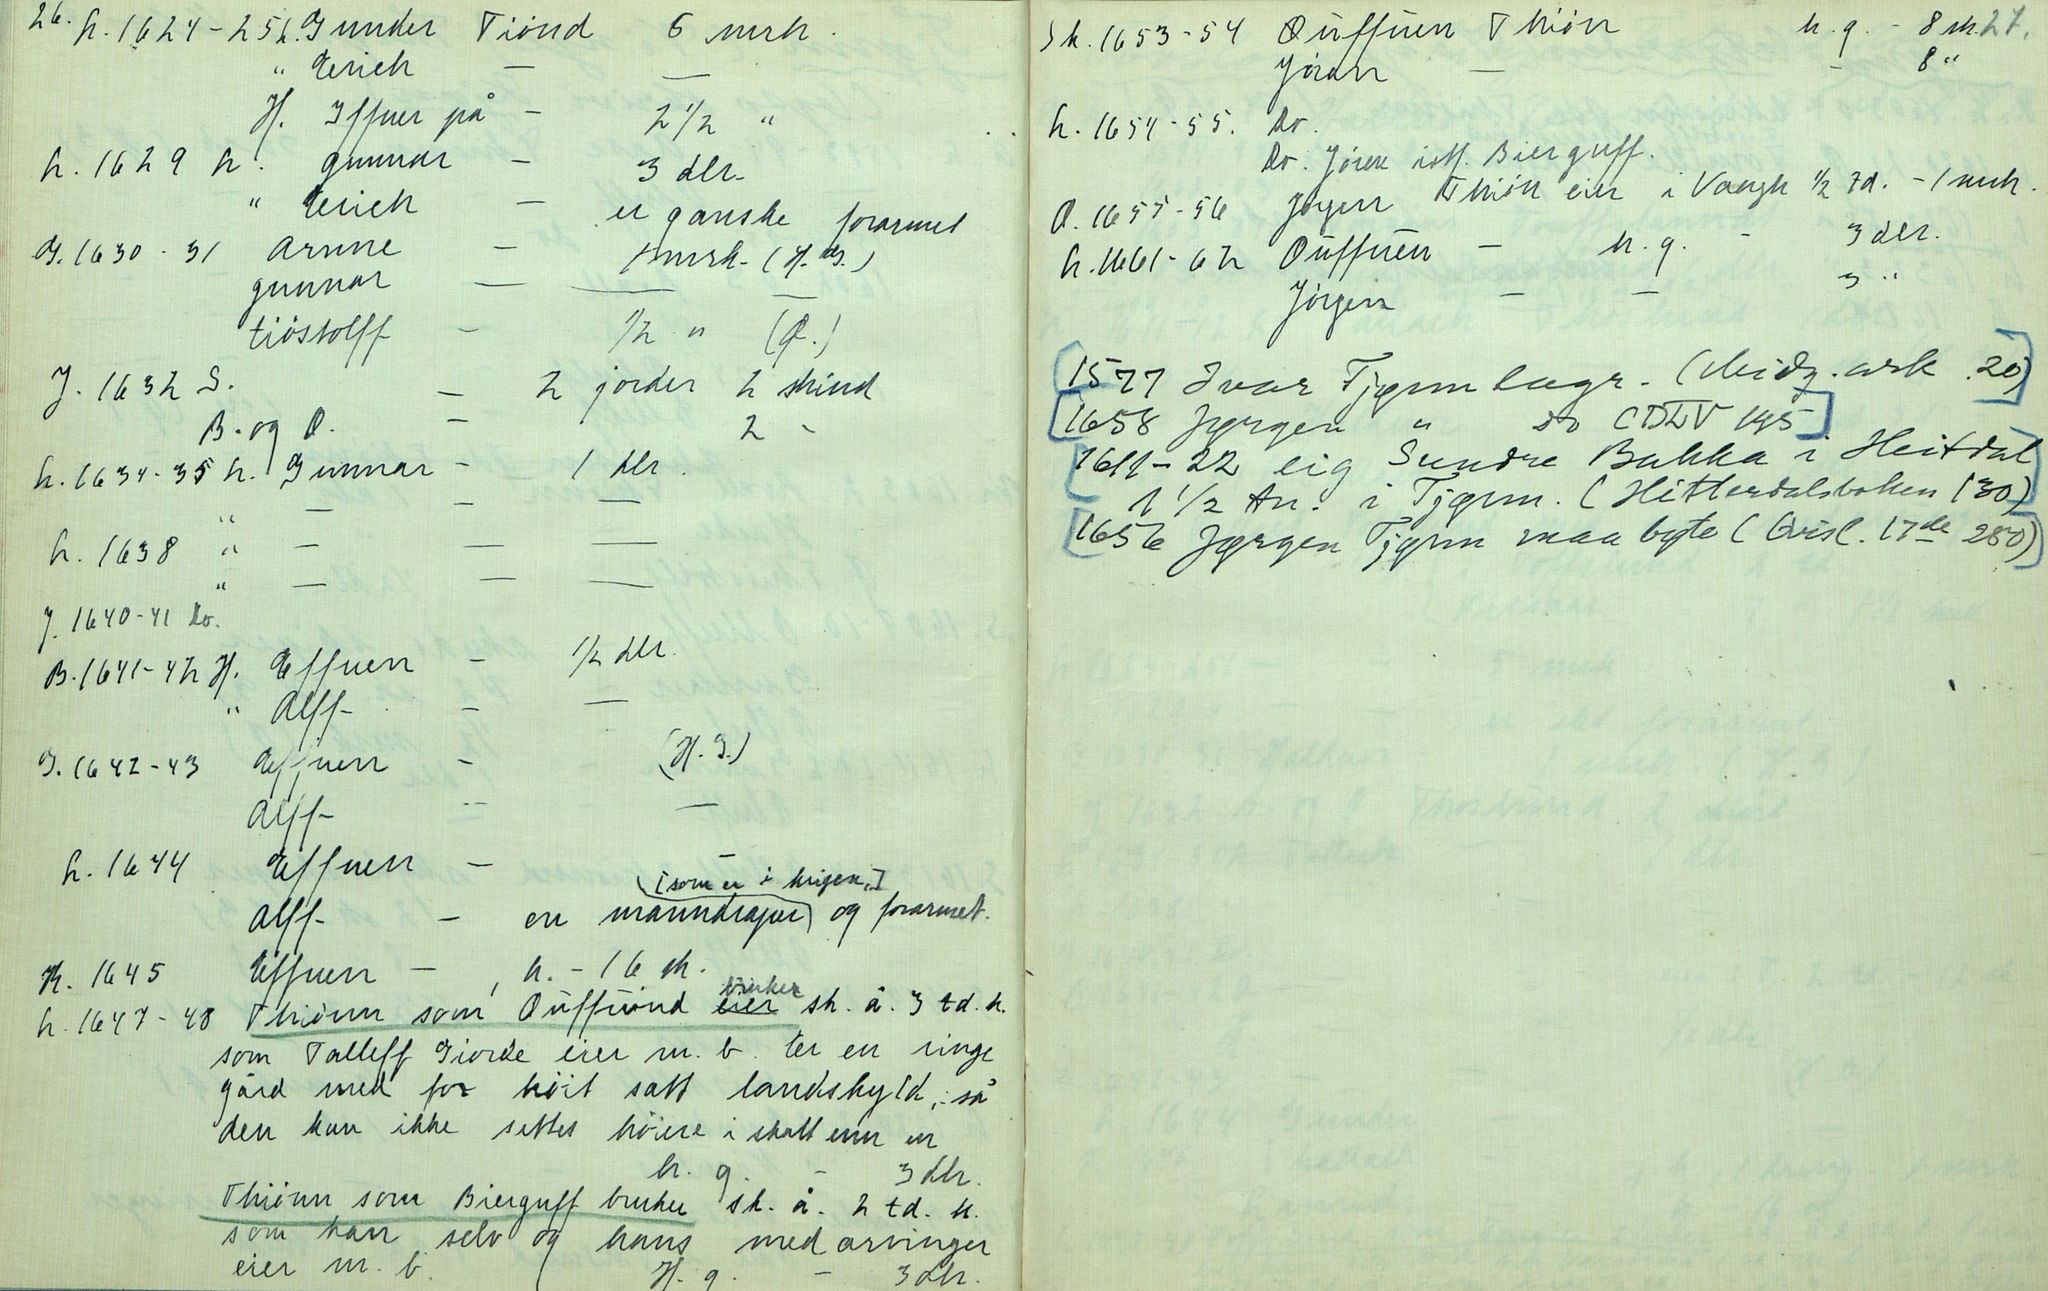 26.
h. 1624-25 h. Gunder Tiönd 6 mrk.
" Erich — —
H. Iffuer på — 2 1/2 "
h. 1629 h. gunnar — 3 dlr.
" Erich — er ganske forarmet
G. 1630-31 Arnne — 1 mrk. (H. G.)
gunnar — — —
tiöstolff — 1/2 " (Ø.)
J. 1632 S. — 2 jorder 2 skind
B. og Ø. — 2 -
h. 1634-35 h. Gunnar — 1 dlr.
" — — —
h. 1638 " — — —
" — — —
J. 1640-41 Do.
B. 1641-42 H. Effuen — 1/2 dlr.
" Alff — —
G. 1642-43 Effuen — (H. G.)
Alff — —
h. 1644 Effuen — —
[som er i krigen.]
Alff — en manndraper og forarmet.
K. 1645 Effuen — h. - 16 sk.
bruker
h. 1647-48 Thiönn som Öuffuond eier sk. å. 3 td. k.
som Talleff Giorde eier m. b. Er en ringe
gård med for höit satt landskyld, så
den kan ikke settes höiere i skatt enn en
h. g. - 3 dlr.
Thiönn som Bierguff bruker sk. å. 2 td. k.
som han selv og hans medarvinger
eier m. b. H. g. - 3 dlr.
27.
Sk. 1653-54 Öuffuen Thiön h. g. - 8 sk.
Jöran — - 8 "
h. 1654-55. Do.
Do. Jören istf. Bierguff.
O. 1655-56 Jörgen Thiön eier i Vaagh 1/2 td. - 1 mrk.
h. 1661-62 Öuffuen — h. g. - 3 dlr.
Jörgen — — 3 "
[1577 Ivar Tjønn lagr. (Meidg. ark. 20)]
[1658 Jørgen " do CDLV 195]
[1611-22 eig Sundre Bakka i Heitdal
1 1/2 An. i Tjønn. (Hitterdalsboken 130)]
[1656 Jørgen Tjønn maa byte (Grisl. 17de 280)]